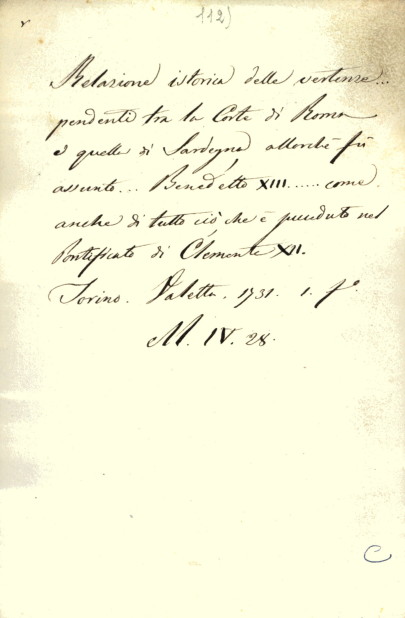 112)
Relazione istorica delle vertenze...
pendenti tra la Corte di Roma
e quella di Sardegna allorchè fù
assunto... Benedetto XIII..... come
anche di tutto ciò che è preceduto nel
Pontificato di Clemente XII.
Torino. Valetta. 1731. 1. fo.
M. IV. 28.
C